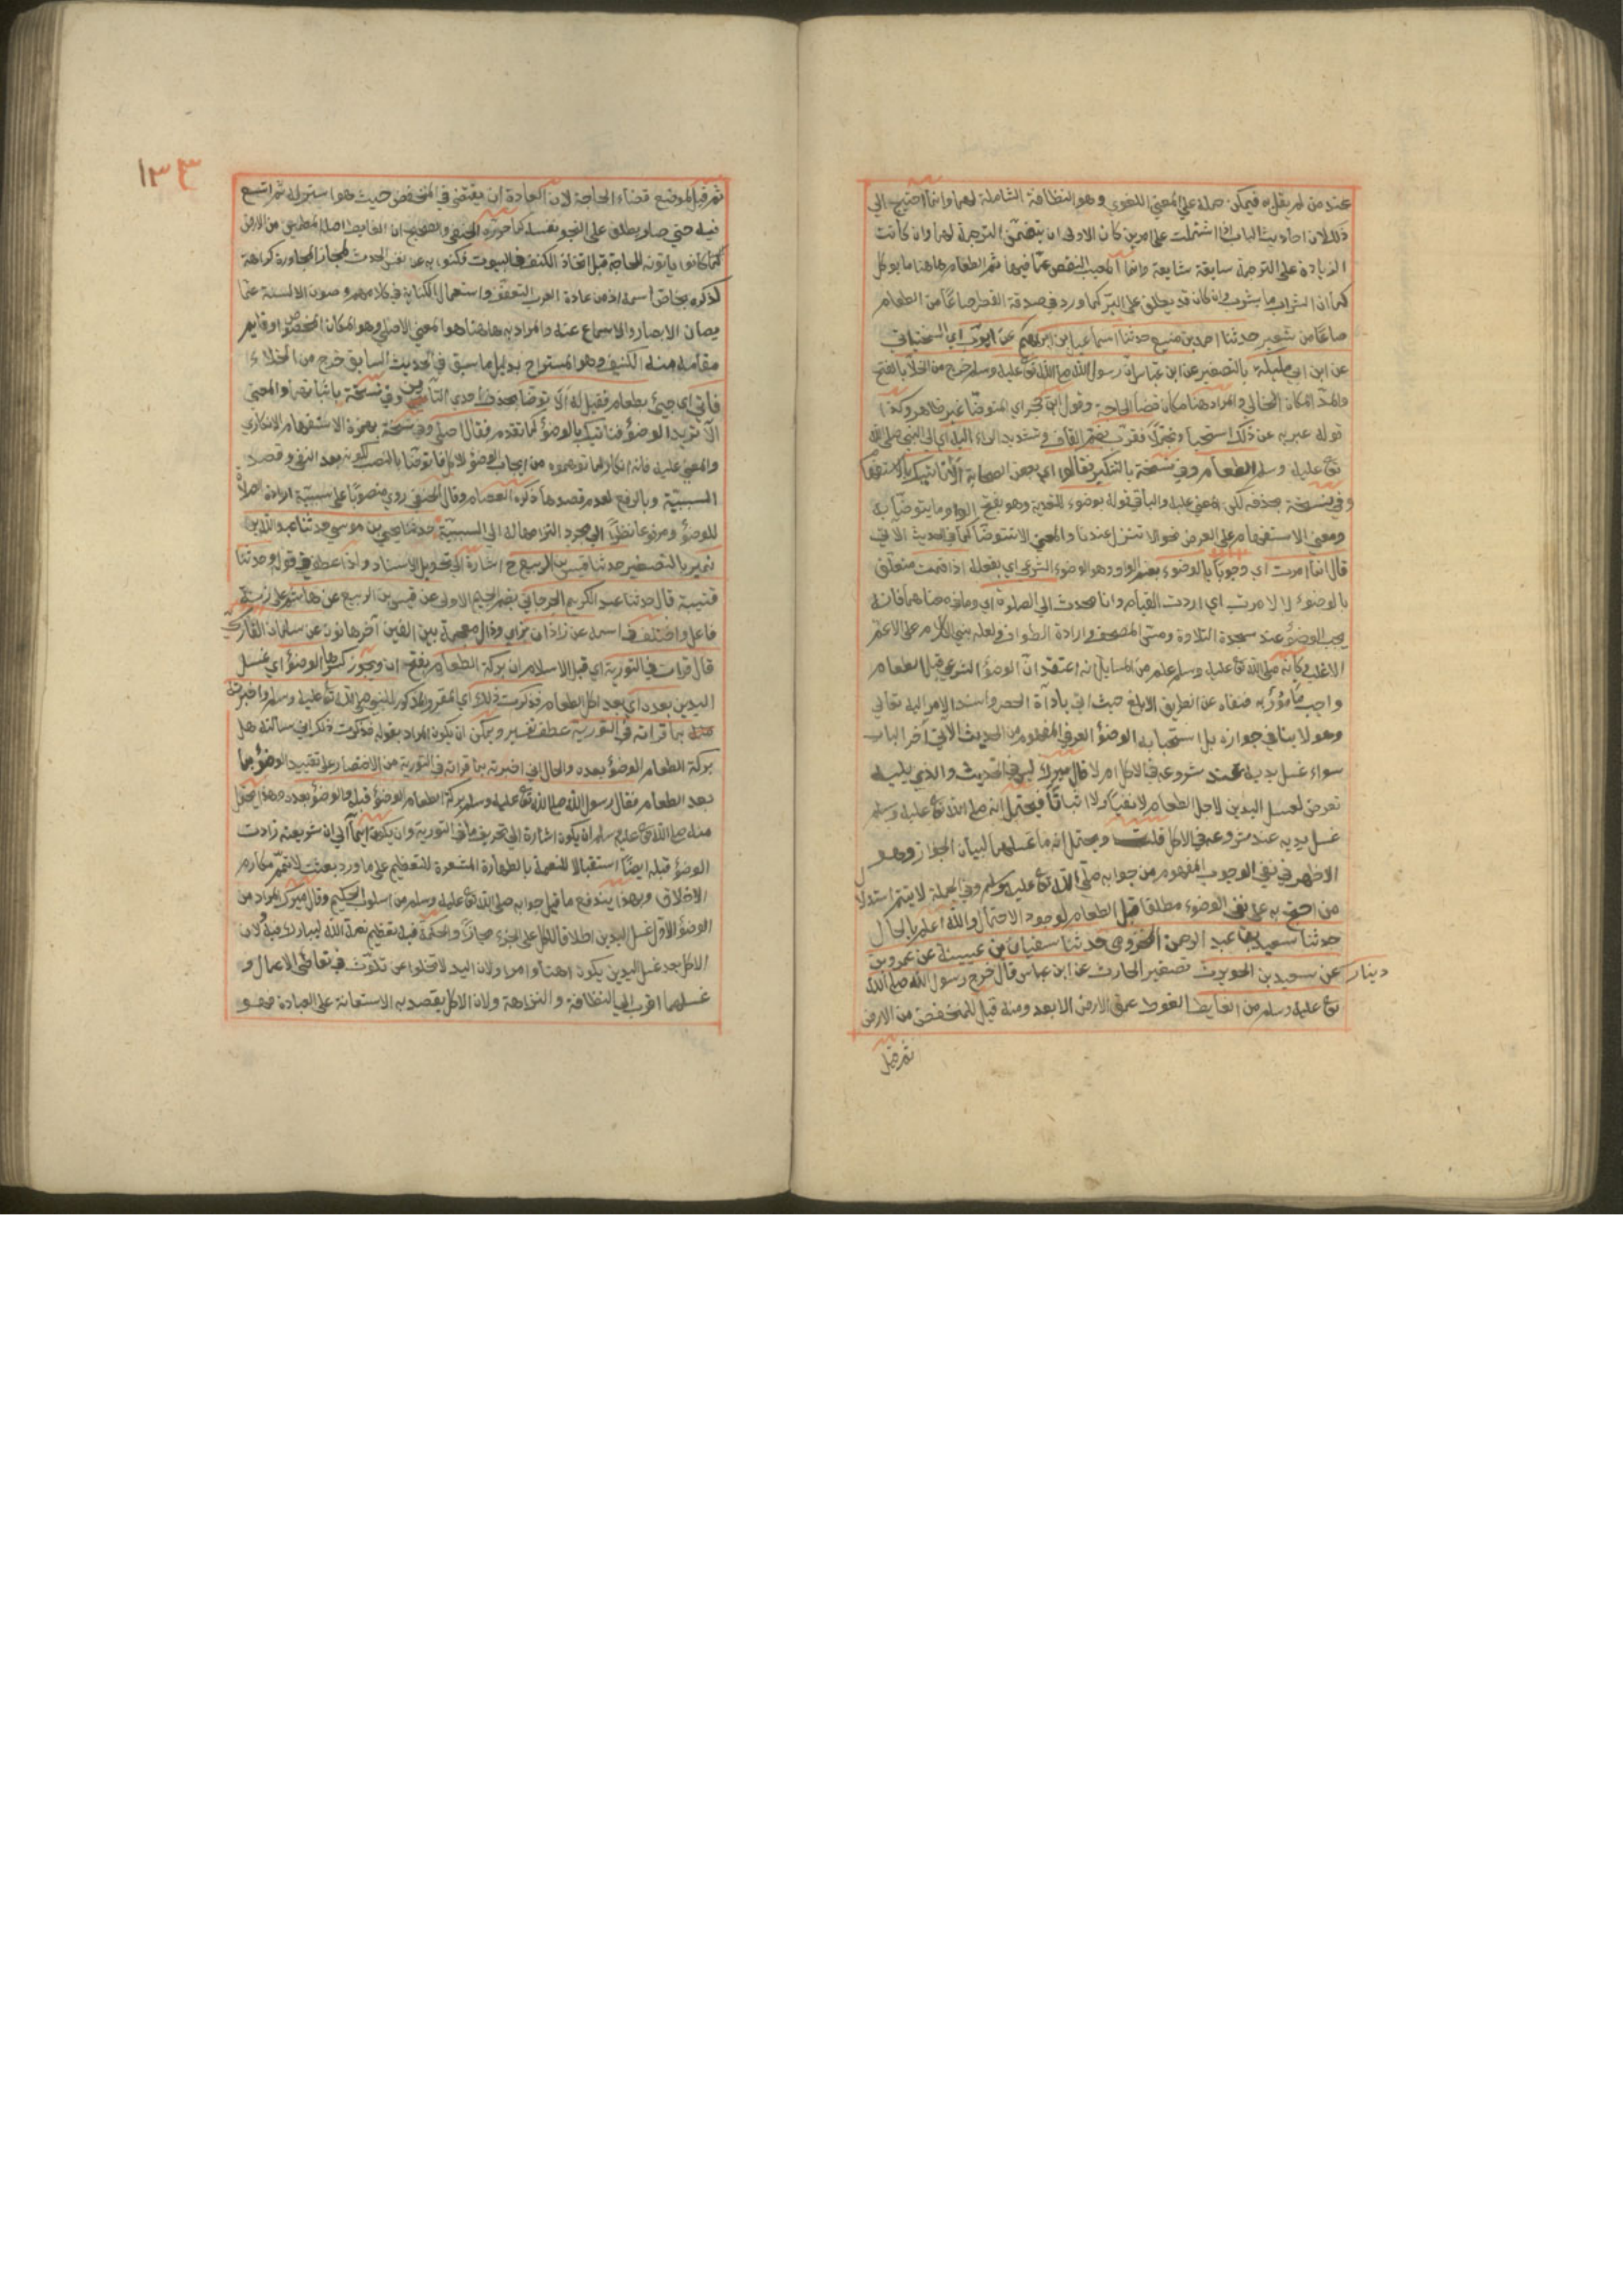 عند من لم يقل به فيمكن حمله على المعنى اللغوي وهو النظافة الشاملة لهما وانما احتيج الى
ذلك لان احاديث الباب لما اشتملت على امرين كان الاولى ان يتضمن الترجمة لهما وان كانت
الزيادة على الترجمة سابقة شايعة وانما المعيب النقص عما فيها ثم الطعام ههنا ما يوكل
كما ان الشراب ما يشرب وان كان قد يطلق على البر كما ورد في صدقة الفطر صاعا من الطعام
صاعا من شعير حدثنا احمد بن منيع حدثنا اسماعيل بن ابراهيم عن ايوب اي السختياني
عن ابن ابي مليكة بالتصغير عن ابن عباس ان رسول الله صلى الله تع عليه وسلم خرج من الخلا بالفتح
والمد المكان الخالي والمراد هنا مكان قضا الحاجة وقول ابن حجر اي المتوضا غير ظاهر وكذا
قوله عبر به عن ذلك استحيا وتجملا فقرب بضم القاف وتشديد الراء اليه اي الى النبي صلى الله
تع عليه وسلم الطعام وفي نسخة بالتنكير فقالوا اي بعض الصحابة الا ناتيك بالاستفهام
وفي نسخة بحذفه لكن المعنى عليه والبا في قوله بوضوء للتعدية وهو بفتح الواو ما يتوضأ به
ومعنى الاستفهام على العرض نحو الا تنزل عندنا والمعنى الا تتوضا كما في الحديث الاتي
قال انما امرت اي وجوبا بالوضوء بضم الواو وهو الوضوء الشرعي اي بفعله اذا قمت متعلق
بالوضوء لا لامرت اي اردت القيام وانا محدث الى الصلوة اي وما في معناها فانه
يجب الوضوء عند سجدة التلاوة ومس المصحف وارادة الطواف ولعله بنى الكلام على الاعم
الاغلب وكانه صلى الله تع عليه وسلم علم من السايل انه اعتقد ان الوضوء الشرعي قبل الطعام
واجب مامور به فنفاه عن الطريق الابلغ حيث اتى باداة الحصر واسند الامر اليه تعالى
وهو لا ينافي جوازه بل استحبابه الوضوء العرفي المفهوم من الحديث الاتي اخر الباب
سواء غسل يديه عند شروعه في الاكل ام لا قال ميرك ليس في الحديث والذي يليه
تعرض لغسل اليدين لاجل الطعام لا نفيا ولا اثباتا فيحتمل انه صلى الله تع عليه وسلم
غسل يديه عند شروعه في الاكل قلت ويحتمل انه ما غسلهما لبيان الجواز وهو
الاظهر في نفي الوجوب المفهوم من جوابه صلى الله تع عليه وسلم وفي الجملة لا يتم استدلال
من احتج به على نفي الوضوء مطلقا قبل الطعام لوجود الاحتمال والله اعلم بالحال
حدثنا سعيد بن عبد الرحمن المخزومي حدثنا سفيان بن عيينة عن عمرو بن
دينار عن سعيد بن الحويرث تصغير الحارث عن ابن عباس قال خرج رسول الله صلى الله
تع عليه وسلم من الغايط الغوط عمق الارض الابعد ومنه قيل للمنخفض من الارض
ثم قيل
١٣٤
ثم قيل لموضع قضاء الحاجة لان العادة ان يقتضى في المنخفض حيث هو استر له ثم اتسع
فيه حتى صار يطلق على النجو نفسه كما جوزه الحنفي والصحيح ان الغايط اصله المطمين من الارض
كما كانوا ياتونه للحاجة قبل اتخاذ الكنف في البيوت فكنوا به عن نفس الحدث لمجاز المجاورة كراهة
لذكره بخاص اسمه اذ من عادة العرب التعفف واستعمال الكناية في كلامهم وصون الالسنة عما
يصان الابصار والاسماع عنه والمراد به هاهنا هو المعنى الاصلي وهو المكان المخصوص او قايم
مقامه منه الكنيف وهو المستراح بدليل ما سبق في الحديث السابق خرج من الخلاء
فاتى اي جيئ بطعام فقيل له الا توضا بحذف احدى التائين وفي نسخة باثباتهما والمعنى
الا تريد الوضوء فناتيك بالوضوء كما تقدم فقال اصلي وفي نسخة بهمزة الاستفهام الانكاري
والمعنى عليه فانه انكار لما توهموه من ايجاب الوضوء للاكل فاتوضا بالنصب لكونه بعد النفي وقصد
السببية وبالرفع لعدم قصدها ذكره العصام وقال الحنفي روي منصوبا على سببية ارادة الصلاة
للوضوء ومرفوعا نظرا الى مجرد التزامها لا الى السببية حدثنا يحيى بن موسى حدثنا عبد الله بن
نمير بالتصغير حدثنا قيس بن الربيع ح اشارة الى تحويل الاسناد ولذا عطف في قوله وحدثنا
قتيبة قال حدثنا عبد الكريم الجرجاني بضم الجيم الاولى عن قيس بن الربيع عن هاشم على زنة
فاعل واختلف في اسمه عن زاذان بزاي وذال معجمة بين الفين اخرها نون عن سلمان الفارسي
قال قرات في التورية اي قبل الاسلام ان بركة الطعام بفتح ان ويجوز كسرها الوضوء اي غسل
اليدين بعده اي بعد اكل الطعام فذكرت ذلك اي المقروء المذكور للنبي صلى الله تع عليه وسلم واخبرته
بما قرات في التورية عطف تفسير ويمكن ان يكون المراد بقوله فذكرت ذلك اني سالته هل
بركة الطعام الوضوء بعده والحال اني اخبرته بما قراته في التورية من الاختصار على تقييد الوضوء بما
بعد الطعام فقال رسول الله صلى الله تع عليه وسلم بركة الطعام الوضوء قبله والوضوء بعده وهذا يحتمل
منه صلى الله تع عليه وسلم ان يكون اشارة الى تحريف ما في التورية وان يكون ايماء الى ان شريعته زادت
الوضوء قبله ايضا استقبالا للنعمة بالطهارة المشعرة للتعظيم على ما ورد بعثت لاتمم مكارم
الاخلاق وبهذا يندفع ما قيل جوابه صلى الله تع عليه وسلم من اسلوب الحكيم وقال ميرك المراد من
الوضوء الاول غسل اليدين اطلاقا للكل على الجزء مجازا والحكمة فيه تعظيم نعمة الله ليبارك فيه ولان
الاكل بعد غسل اليدين يكون اهنا وامرا ولان اليد لا تخلوا عن تلوث في تعاطي الاعمال و
غسلهما اقرب الى النظافة والنزاهة ولان الاكل يقصد به الاستعانة على العبادة فهو